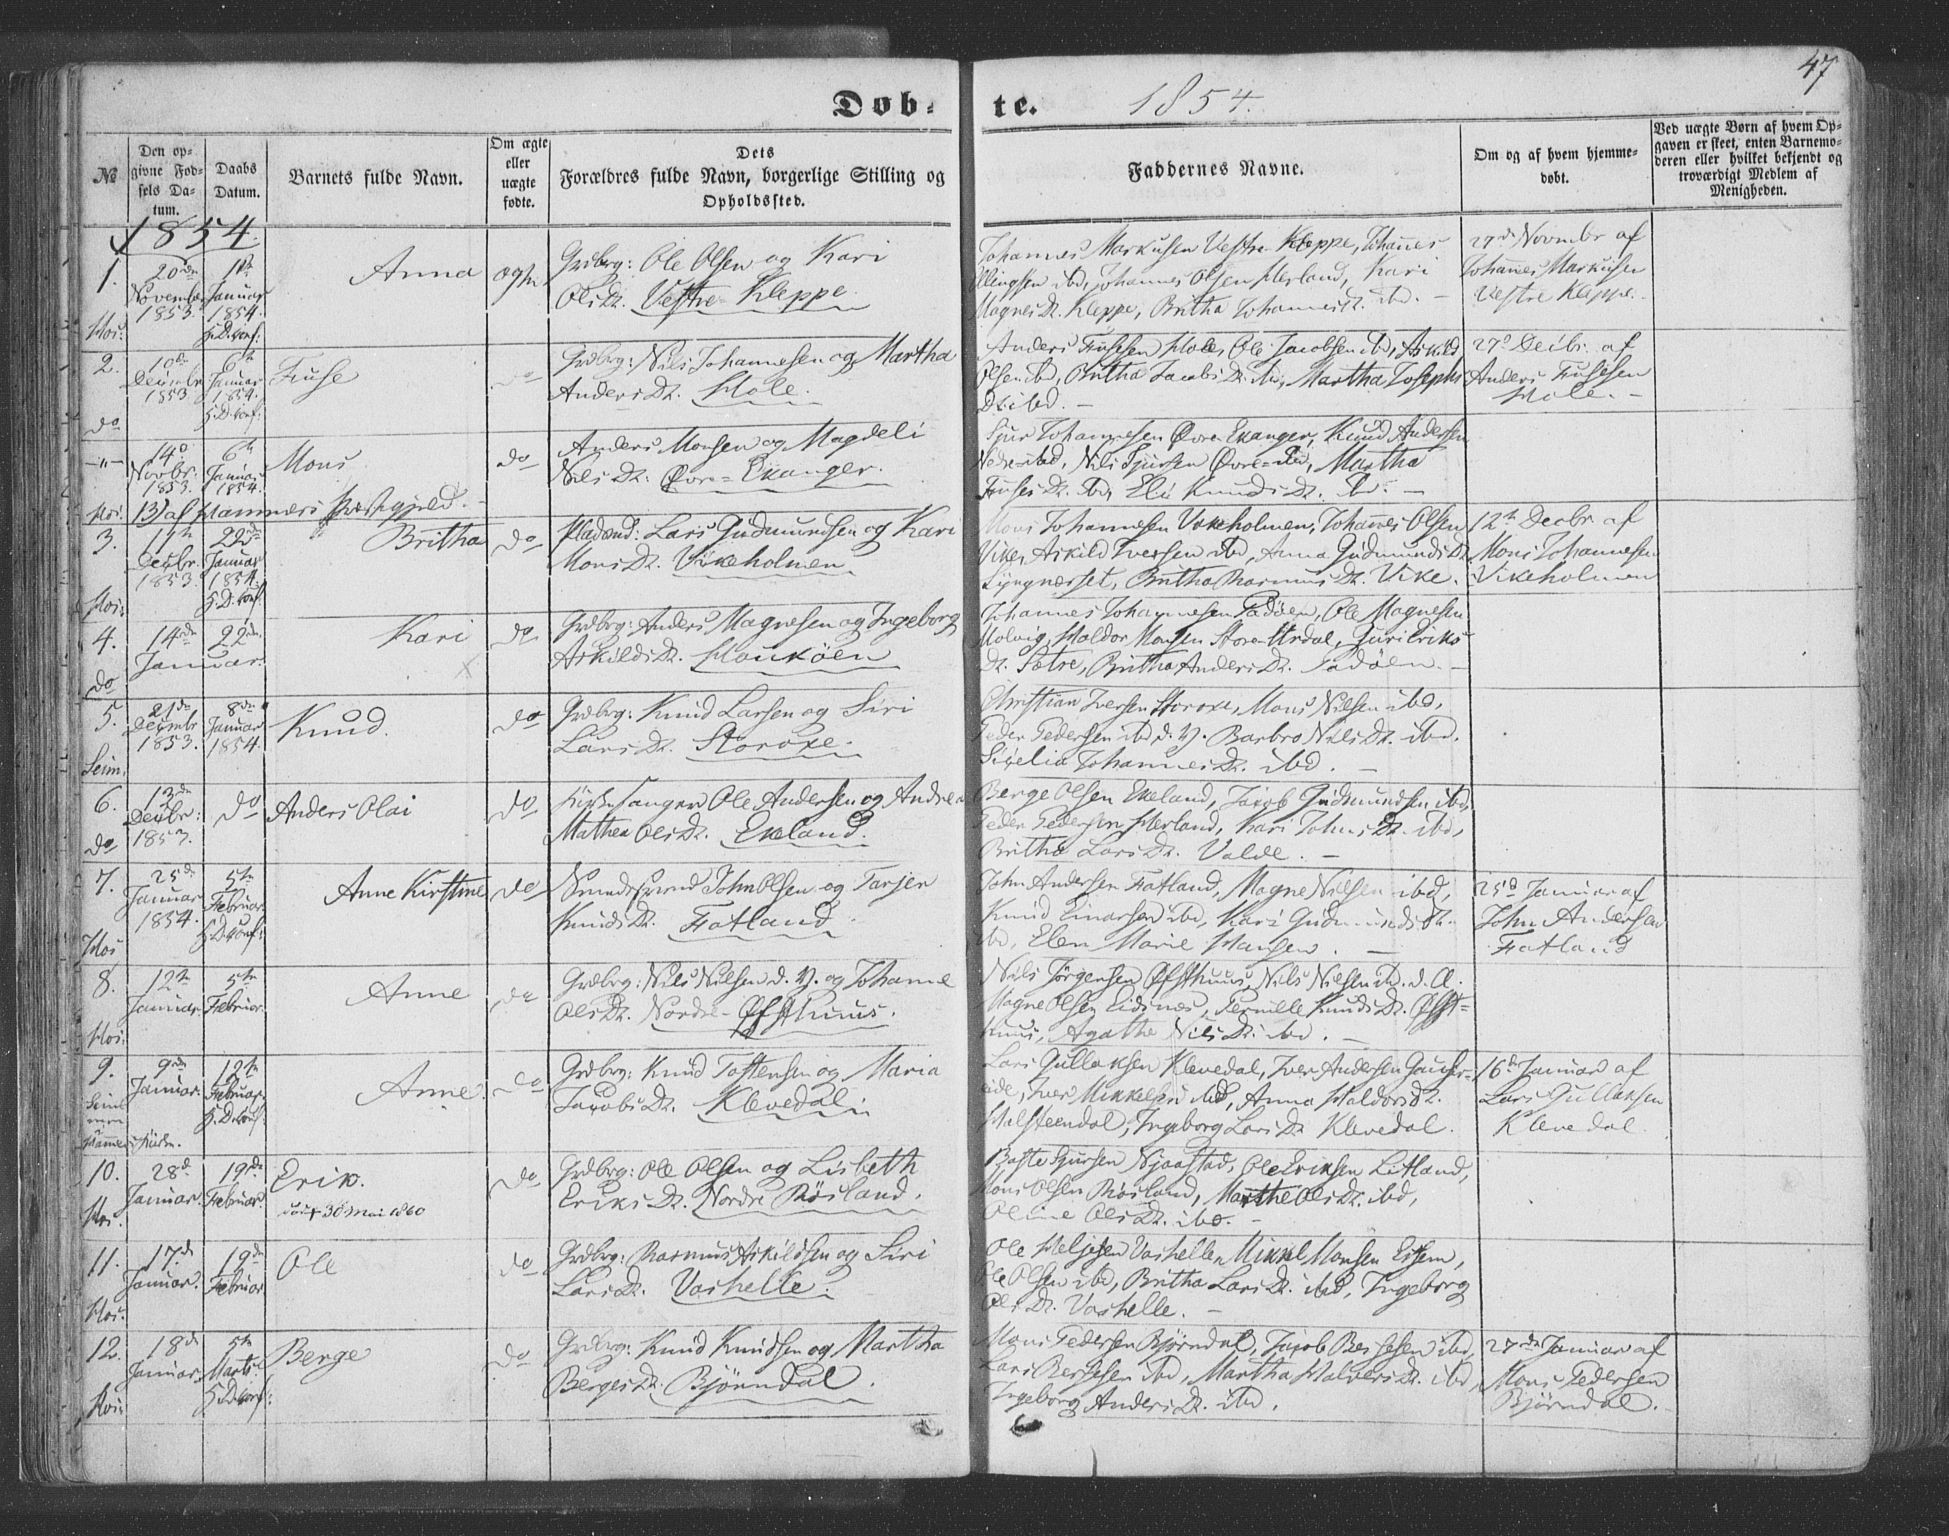 47
Døb-
te.
1854.
№
Den op-
givne Fød-
sels Da-
tum.
Daabs
Datum.
Barnets fulde Navn.
Om ægte
eller
uægte
fødte.
Dets
Forældres fulde Navn, borgerlige Stilling og
Opholdssted.
Faddernes Navne.
Om og af hvem hjemme-
døbt.
Ved uægte Børn af hvem Op-
gaven er skeet, enten Barnemo-
deren eller hvilket bekjendt og
troværdigt Medlem af
Menigheden.
1854.
1.
20de
November
1853.
Januar
1854.
Anna
ægte
Grdbrg: Ole Olsen og Kari
Olsdr. Vestre-Kleppe.
Johannes Markusen Vestre Kleppe, Johannes
Ellingsen ibd, Johannes Olsen Herland, Kari
Magnesdr. Kleppe, Britha Johannesdr. ibd. -
27de Novmbr af
Johannes Markusen
Vestre Kleppe.
Hos:
2.
10de
Decmbr
1853
6te
Januar
1854.
Fuse
do
Grdbrg: Nils Johannesen og Martha
Andersdr. Hole.
Anders Fusesen Hole, Ole Jacobsen ibd, Askild
Olsen ibd, Britha Jacobsdr. ibd, Martha Josephs
Dr. ibd. -
27de Decbr. af
Anders Fusesen
Hole. -
do
-"-
14de
Novbr.
1853.
6te
Januar
1854.
Mons
do
Anders Monsen og Magdeli
Nilsdr. Øvre-Ekanger.
Sjur Johannesen Øvre Ekanger, Knud Andersen
Nedre ibd, Nils Sjursen Øvre-ibd, Martha
Fusesdr. ibd, Eli Knudsdr. ibd. -
Hos.
13) af Hammers Præstegjeld. -
3.
11te
Decbr.
1853.
22de
Januar
1854.
Britha
do
Pladsmd: Lars Gudmundsen og Kari
Monsdr. Vikeholmen
Mons Johannesen Vikeholmen, Johannes Olsen
Vike, Askild Iversen ibd, Anna Gudmundsdr.
Lyngnæsset, Britha Rasmusdr. Vike.
12te Decbr af
Mons Johannesen
Vikeholmen
Hos:
4.
14de
22de
Januar.
Kari
do
Grdbrg: Anders Magnesen og Ingeborg
Askildsdr. Houkøen
Johannes Johannesen Tadøen, Ole Magnesen
Molvig, Haldor Monsen Store Urdal, Guri Eriks
Dr. Sætre, Britha Andersdr. Tadøen. -
do
5.
21de
Decmbr
1853.
8de
Januar
1854.
Knud.
do
Grdbrg: Knud Larsen og Siri
Larsdr. Storoxe.
Christian Iversen Storoxe, Mons Nilsen ibd,
Peder Pedersen ibd d. y. Barbro Nilsdr. ibd.
Sicelia Johannesdr. ibd. -
Seim.
6.
13de
Decbr:
1853.
do
Anders Olai
do
Kirkesanger Ole Andersen og Andrea
Mathea Olsdr. Ekeland.
Berge Olsen Ekeland, Jacob Gudmundsen ibd,
Peder Pedersen Herland, Kari Johnsdr. ibd,
Britha Larsdr. Valde. -
do
7.
25de
Januar
1854.
5te
Februar
Anne Kirstine
do
John Olsen og Tarjer
Knudsdr. Fatland.
John Andersen Fatland, Magne Nilsen ibd,
Knud Einarsen ibd, Kari Gudmundsdr.
ibd, Elen Marie Hansen. -
25de Januar af
John Andersen
Fatland
Hos
8.
12te
Januar.
5te
Februar.
Anne
do
Grdbrg: Nils Nilsen d. y. og Johanne
Olsdr. Nordre-Øfsthuus.
Nils Jørgensen Øfsthuus, Nils Nilsen ibd. d. æ.
Magne Olsen Eidsnes, Pernille Knudsdr. Øfst-
huus, Agathe Nilsdr. ibd. -
Hos:
9.
9de
Januar.
12te
Februar.
Anne
do
Grdbrg: Knud Tostensen og Maria
Jacobsdr. Klevedal.
Lars Gullaksen Klevedal, Iver Andersen
Iver Mikkelsen ibd, Anna Haldorsdr.
Halsteendal, Ingeborg Larsdr Klevedal.
16de Januar af
Lars Gullaksen
Klevedal.
10.
28de
Januar.
19de
Februar.
Erik.
død 30 Mai 1860
do
Grdbrg: Ole Olsen og Lisbeth
Eriksdr. Nordre Røsland.
Boste Sjursen Njaastad, Ole Eriksen Litland,
Mons Olsen Røsland, Marthe Olsdr. ibd,
Oline Olsdr. ibd. -
Hos.
11.
17de
Januar.
19de
Februar
Ole
do
Grdbrg: Rasmus Askildsen og Siri
Larsdr. Vashelle.
Ole Helgesen Vashelle, Mikkel Monsen Eiknem,
Ole Olsen ibd, Britha Larsdr. ibd, Ingeborg
Olsdr. Vashelle. -
Hos.
12.
18de
Januar.
5te
Marts.
Berge
do
Grdbrg: Knud Knudsen og Martha
Bergesdr. Bjørndal.
Mons Pedersen Bjørndal, Jacob Bergesen ibd,
Lars Bergesen ibd, Martha Halversdr. ibd,
Ingeborg Andersdr. ibd.
27de Januar af
Mons Pedersen
Bjørndal.
Hos: